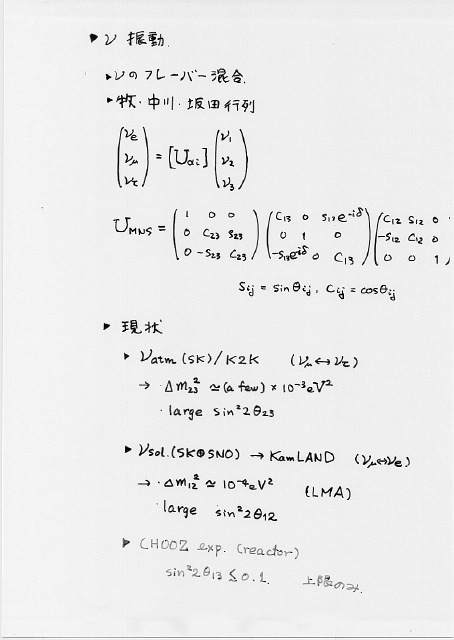 ▶ ν 振動.
▶ νのフレーバー混合.
▶ 牧・中川・坂田行列
(νe νμ ντ) = [Uαi] (ν1 ν2 ν3)
UMNS = (1 0 0 / 0 C23 S23 / 0 -S23 C23) (C13 0 S13e^-iδ / 0 1 0 / -S13e^iδ 0 C13) (C12 S12 0 / -S12 C12 0 / 0 0 1)
Sij = sinθij, Cij = cosθij
▶ 現状
▶ νatm (SK)/K2K (νμ↔ντ)
→ ・Δm23² ≃ (a few) × 10⁻³eV²
・large sin²2θ23
▶ νsol. (SK⊕SNO) → KamLAND (νμ↔νe)
→ ・Δm12² ≃ 10⁻⁴eV² (LMA)
large sin²2θ12
▶ CHOOZ exp. (reactor)
sin²2θ13 ≲ 0.1. 上限のみ.